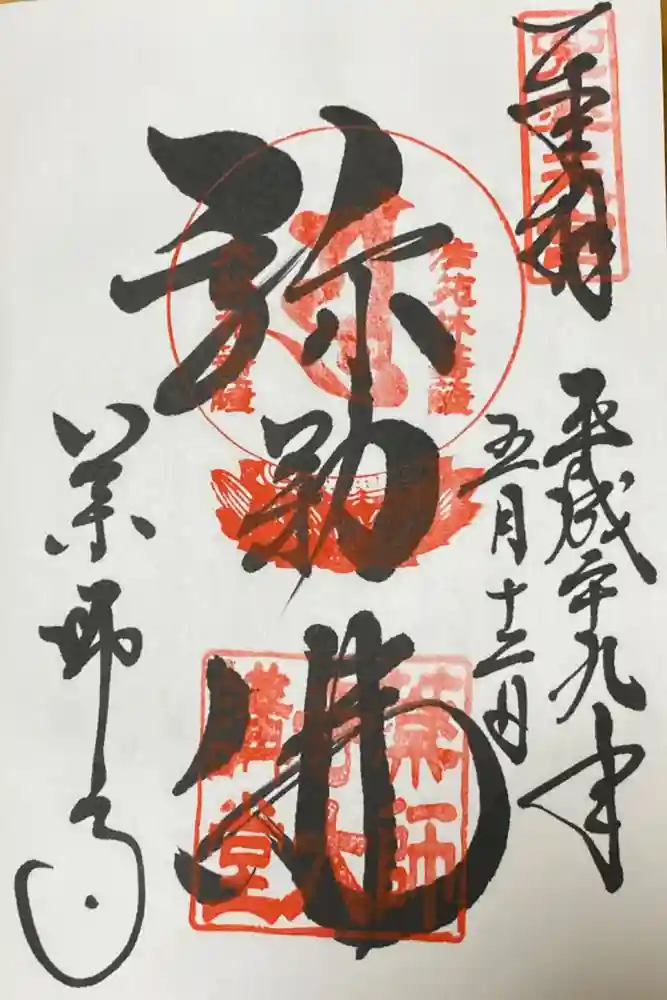 奉拝
平成二十九年
五月十三日
法苑林菩薩
弥勒佛
薬師
寺大
講堂
薬師寺